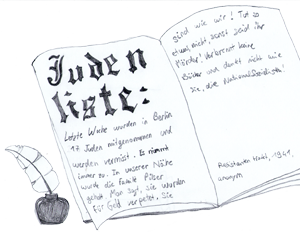 Juden
liste:
Letzte Woche wurden in Berlin
17 Juden mitgenommen und
werden vermisst. Es nimmt
immer zu. In unserer Nähe
wurde die Familie
geholt. Man sagt, sie wurden
für Geld verpetzt. Sie
sind wie wir! Tut so
etwas nicht, sonst seid ihr
Mörder! Verbrennt keine
Bücher und denkt nicht wie
sie, die Nationalsozialisten!
1941,
anonym